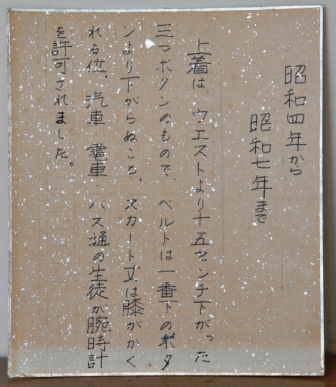 昭和四年から
昭和七年まで
上着は ウエストより十五センチ下がった
三つボタンのもので、ベルトは一番下のボタ
ンより下がらぬこと。スカート丈は膝がかく
れる位、汽車 電車 バス通の生徒が腕時計
を許可されました。